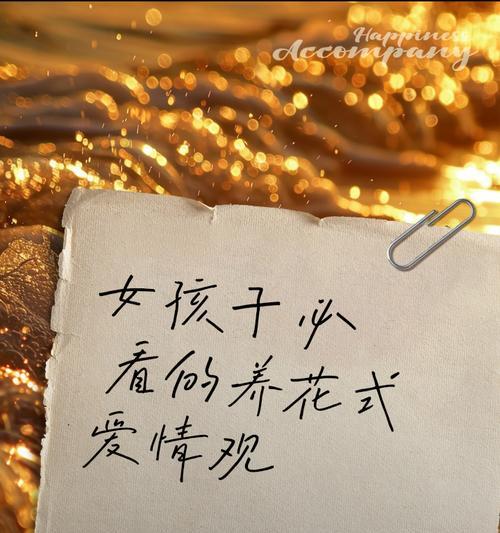 Happiness
Accompany
女孩子必
看的养花式
爱情观